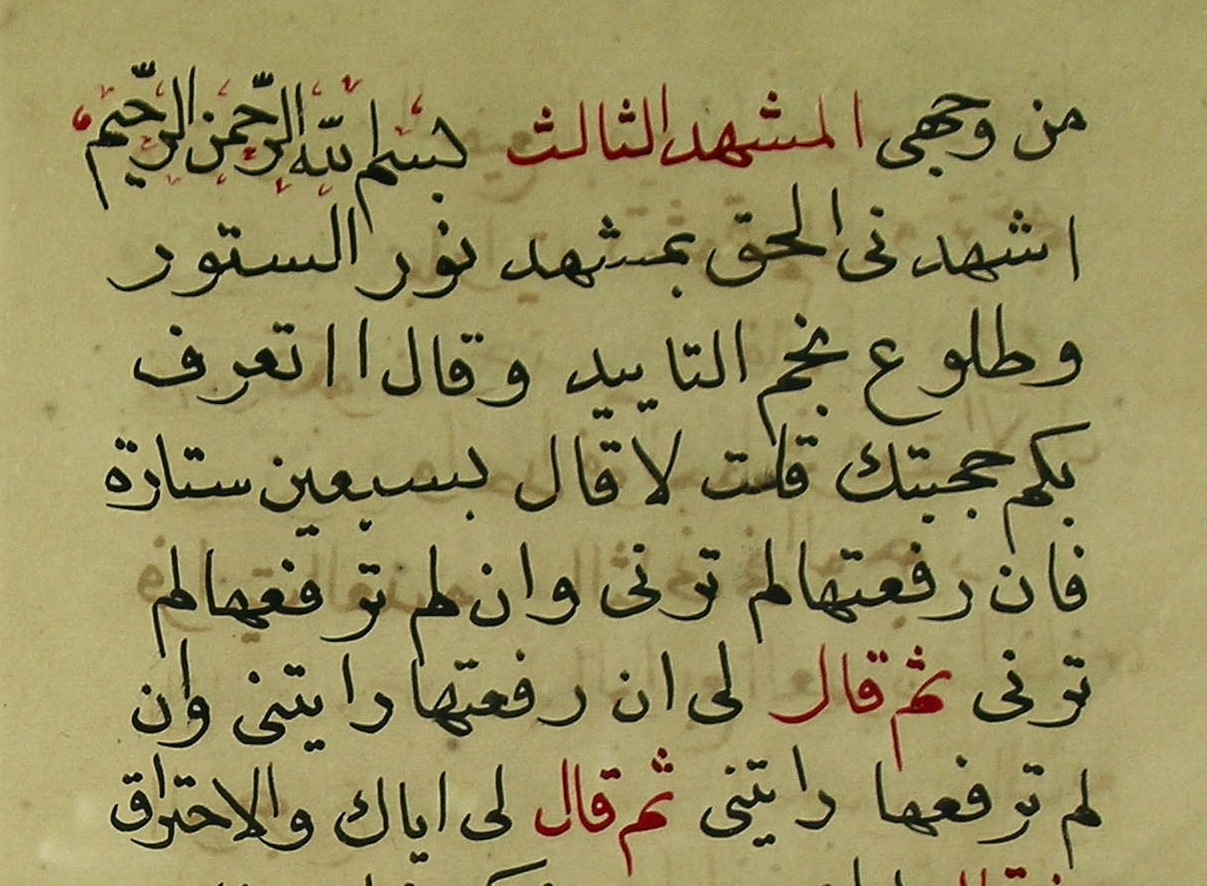 من وجهى المشهد الثالث بسم الله الرحمن الرحيم
اشهدنى الحق بمشهد نور الستور
وطلوع نجم التاييد وقال لى اتعرف
بكم حجبتك قلت لا قال بسبعين ستارة
فان رفعتها لم ترنى وان لم ترفعها لم
ترنى ثم قال لى ان رفعتها رايتنى وان
لم ترفعها رايتنى ثم قال لى اياك والاحتراق